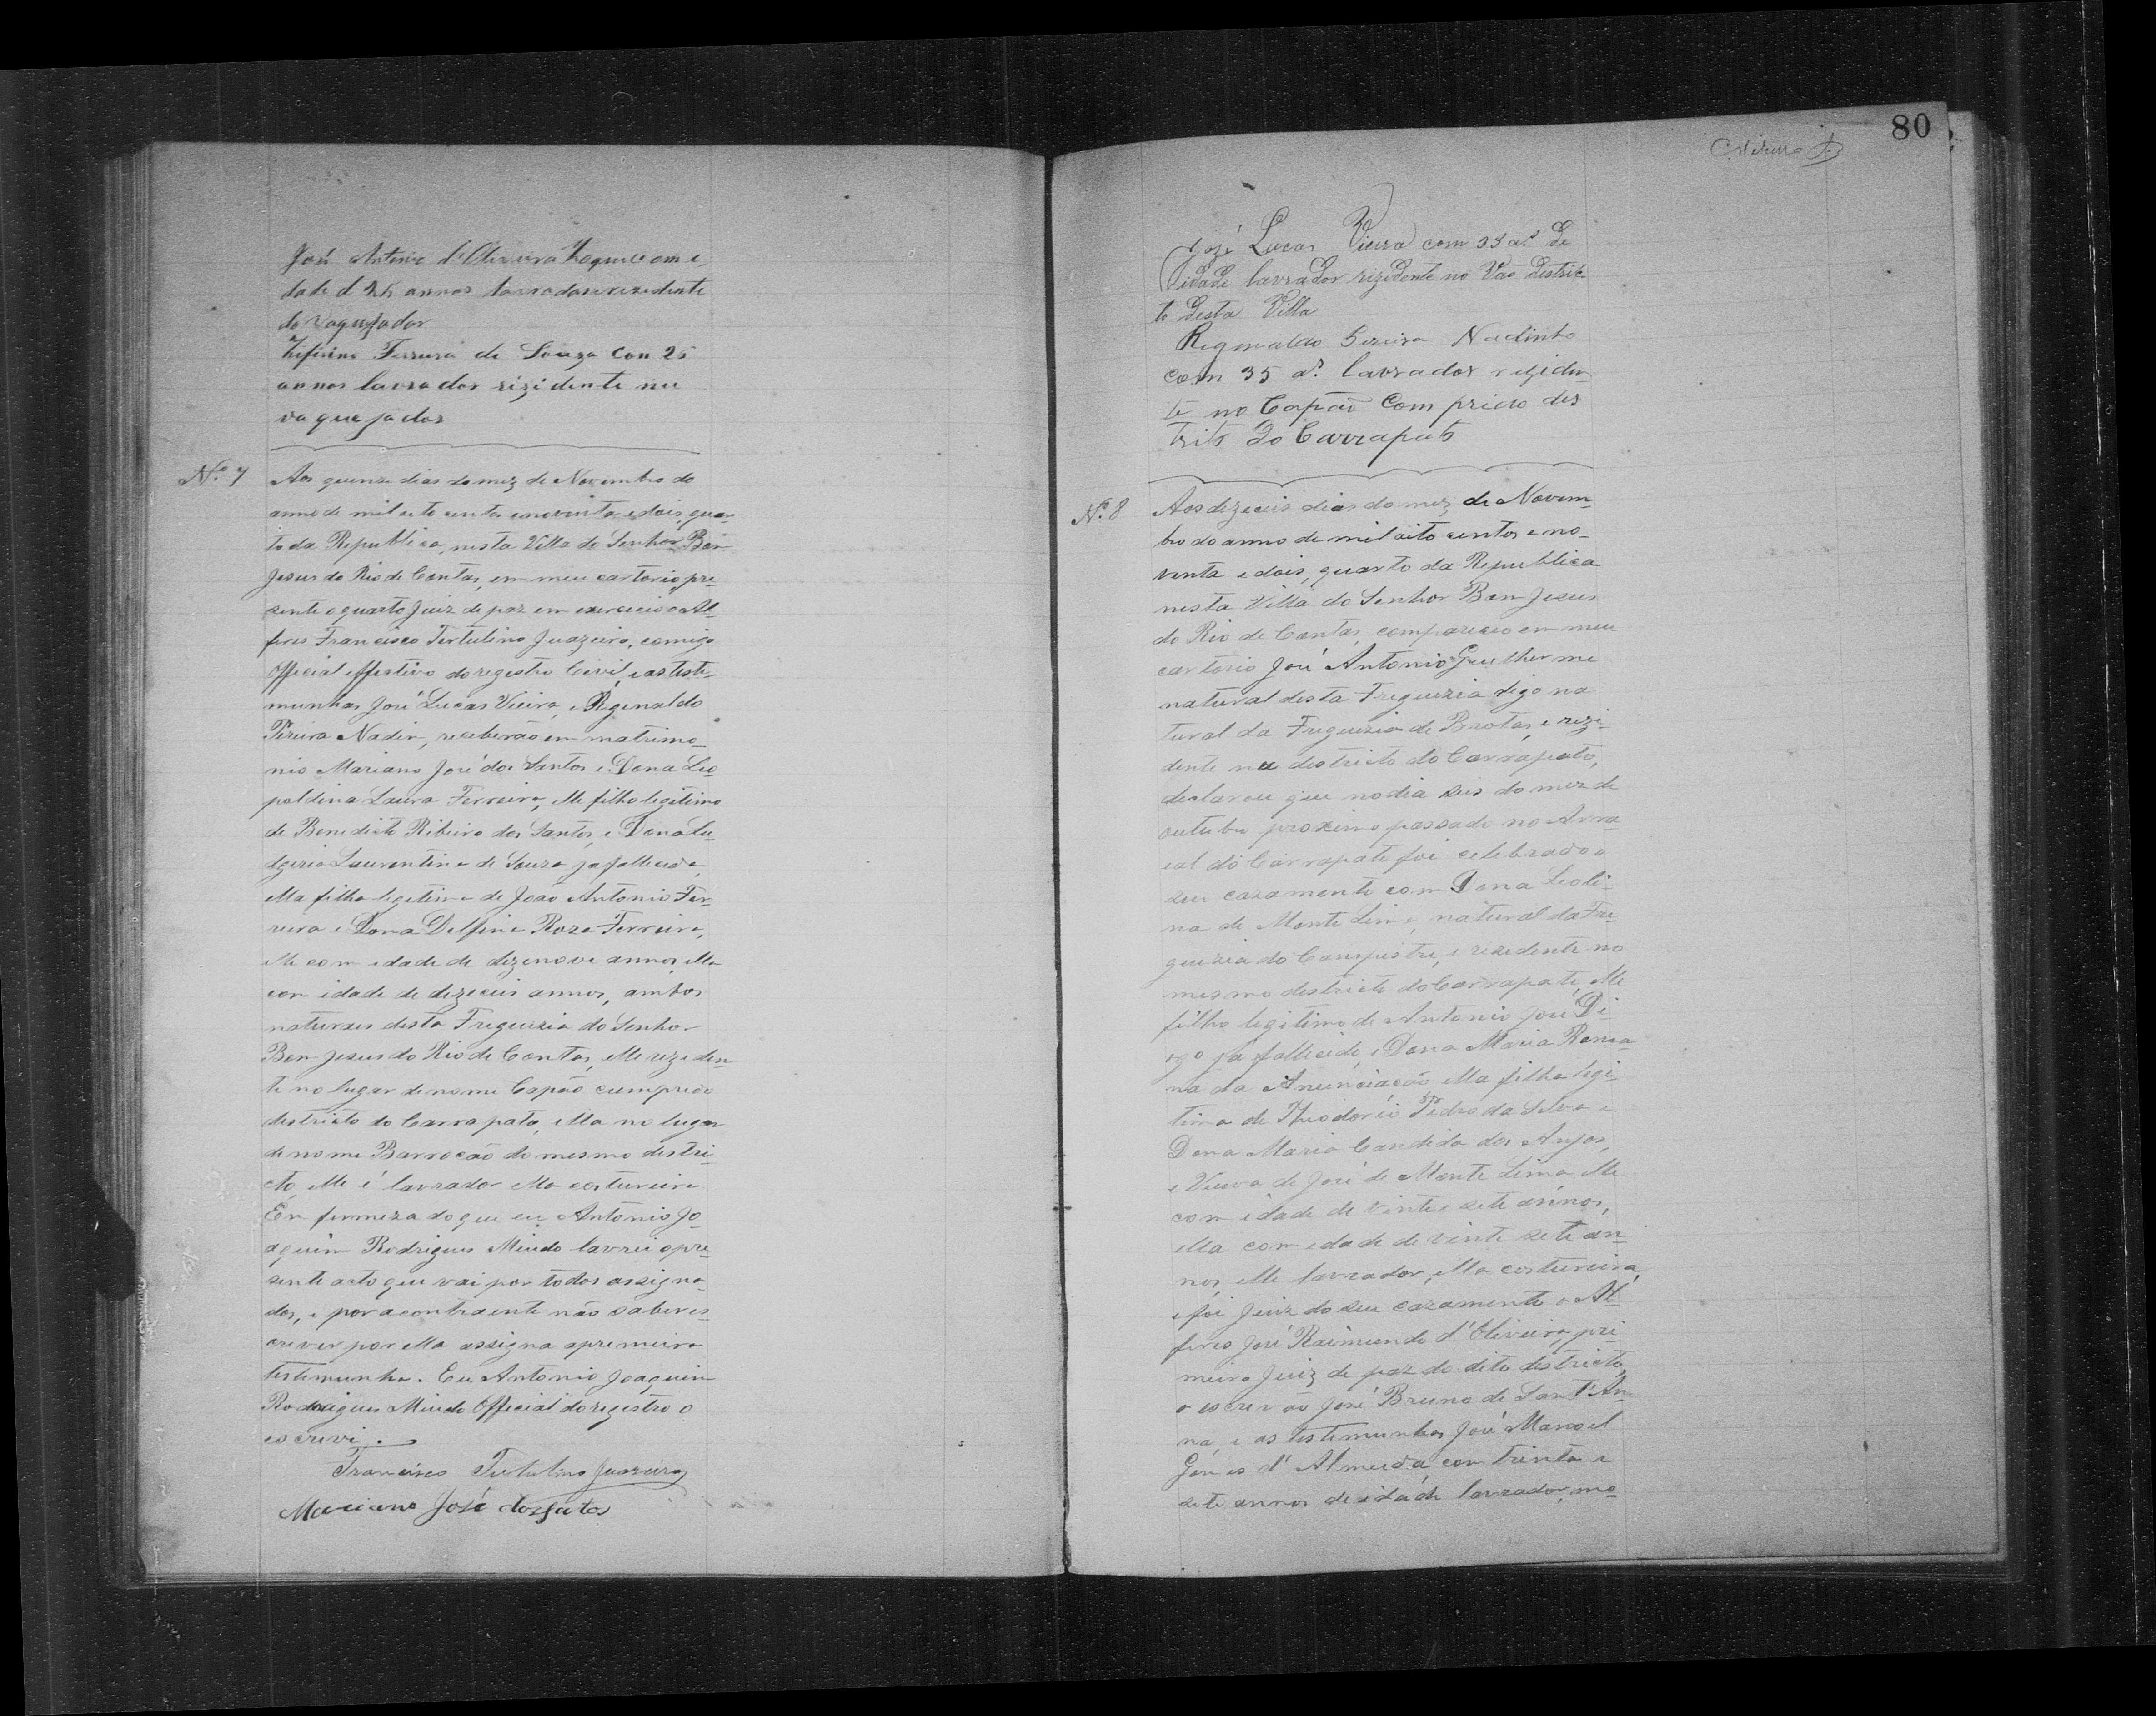 José Antonio d'Oliveira Roque com i
dade d 25 annos lavrador rezidente
do vaquejador
Zifirino Ferreira de Souza Com 25
annos lavrador rizidente nu
vaquejador
Nº 7
Aos quinze dias do mez de Novembro do
anno de mil oito centos e noventa e dois, quar
to da Republica, nesta Villa do Senhor Bom
Jesus do Rio de Contas, em meu cartorio pre
sente o quarto Juiz de paz em exercicio o Al
feres Francisco Tertulino Juazeiro, comigo
Official effectivo do registro Civil, e as teste
munhas José Lucas Vieira, e Riginaldo
Pereira Nadin, receberão em matrimo
nio Mariano José dos Santos e Dona Leo
poldina Laura Ferreira, elle filho legitimo
de Benedicto Ribeiro dos Santos, e Dona Lu
dgeria Laurentina de Souza ja fallecida,
ella filha legitima de João Antonio Fer
reira e Dona Delfina Roza Ferreira,
elle com idade de dezenove annos, ella
com idade de dezeceis annos, ambos
naturaes desta Freguezia do Senhor
Bom Jesus do Rio de Contas, elle reziden
te no lugar de nome Capão cumprido
districto do Carrapato, ella no lugar
de nome Barrocão do mesmo distri
cto, elle é lavrador ella costureira
Em firmeza do que eu Antonio Jo
aquim Rodrigues Miudo lavrei o pre
sente acto que vai por todos assigna
dos, e por a contraente não saber es
crever por ella assigna a primeira
testemunha. Eu Antonio Joaquim
Rodrigues Miudo Official do registro o
escrevi.
Francisco Tertulino Juazeiro
Mariano José dos Santos
80
José Lucas Vieira com 33 as. de
idade lavrador rezidente no Vao distric
to desta Villa
Regenaldo Pereira Nadinho
com 35 as. lavrador reziden
te no Capão Comprido des
trito do Carrapato
Nº 8
Aos dezeceis dias do mez de Novem
bro do anno de mil oito centos e no
venta e dois, quarto da Republica
nesta Villa do Senhor Bom Jesus
do Rio de Contas, compareceo em meu
cartorio José Antonio Guilherme
natural desta Freguezia digo na
tural da Freguezia de Brotas, e rezi
dente no districto do Carrapato,
declarou que no dia seis do mez de
outubro proximo passado no Arra
ial do Carrapato foi celebrado o
seu cazamento com Dona Leoli
na de Monte Lima, natural da Fre
guezia do Campestre, e rezedente no
mesmo districto do Carrapato, elle
filho legitimo de Antonio José Di
ogo ja fallecido, e Dona Maria Roma
na da Anunciação ella filha legi
tima de Theodorio Pedro da Silva e
Dona Maria Candida dos Anjos,
e Viuva de José de Monte Lima elle
com idade de vinte e sete annos,
ella com idade de vinte sete an
nos, elle lavrador, ella costureira,
e foi Juiz do seu cazamento o Al
feres José Raimundo d'Oliveira, pri
meiro Juiz de paz do dito districto,
o escrivão José Bruno de Sant'An
na, e as testemunhas José Manoel
Gomes d'Almeida com trinta e
sete annos de idade lavrador, mo